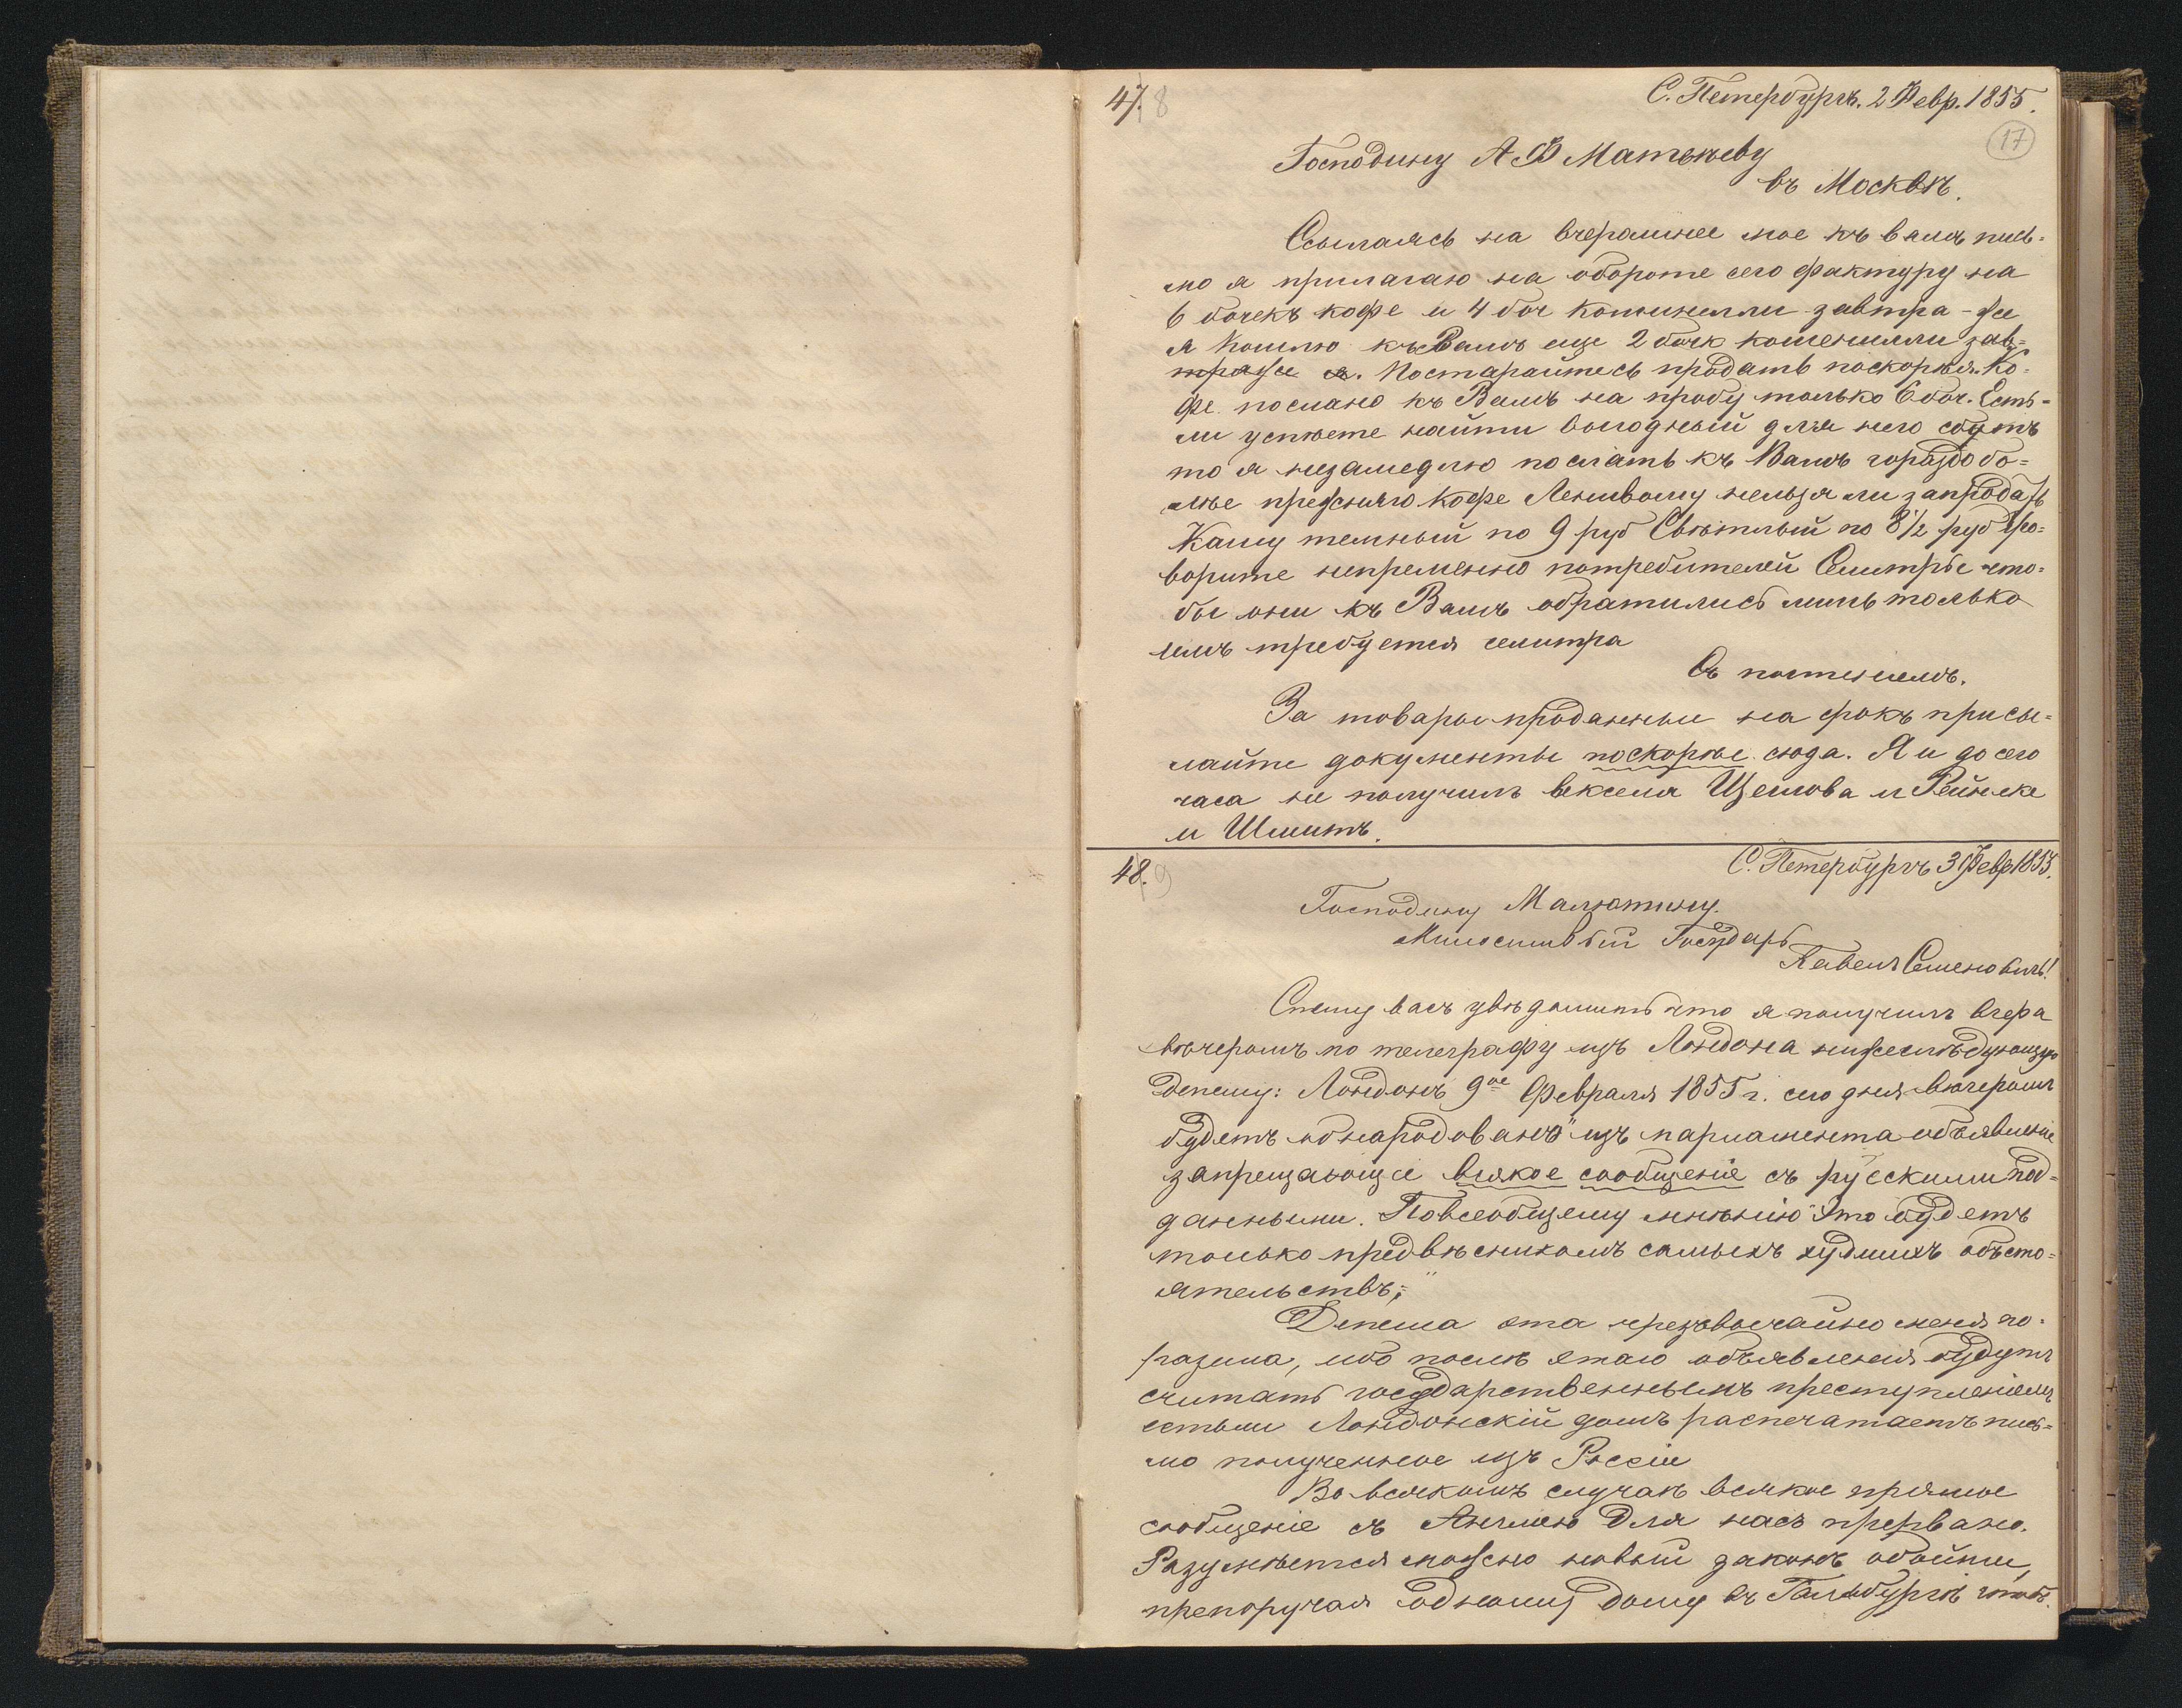 47. 8
С. Петербургъ. 2 Февр. 1855.
17
Господину А Ф Матвѣеву
въ Москвѣ.
Ссылаясь на вчерашнее мое къ вамъ пись=
мо я прилагаю на обороте сего фактуру на
6 бочекъ кофе и 4 боч кошенилли завтра-же
я пошлю къ Вамъ еще 2 бочк кошенилли зав=
траже я. Постарайтесь продать поскорѣя. Ко=
фе послано къ Вамъ на пробу только 6 боч. Есть=
ли успѣете найти выгодный для него сбутъ
то я незамедлю послать къ Вамъ гораздо бо=
лѣе прежняго кофе Ленивому нельзя ли запродать
Кашу темный по 9 руб Свѣтлый по 8 1/2 руб Уго=
ворите непременно потребителей Селитры что=
бы они къ Вамъ обратились лишь только
имъ требуется селитра
Съ почтениемъ.
За товары проданныи на срокъ присы=
лайте документы поскорѣе сюда. Я и до сего
часа не получилъ векселя Щеглова и Рейнеке
и Шмитъ.
48. 9
С. Петербургъ 3 Февр 1855.
Господину Малютину.
Милостивый Государь
Павелъ Семеновичь!
Спешу васъ увѣдомить что я получилъ вчера
вѣчеромъ по телеграфу изъ Лондона нижеслѣдующую
депешу: Лондонъ 9ое Февраля 1855 г. сего дня вѣчеромъ
будетъ обнародованъ" изъ парламента объявление
запрещающіе всякое сообщеніе съ русскими под=
данными. По всеобщему мнѣнію это будетъ
только предвѣсникомъ самыхъ худшихъ обсто=
ятельствъ;"
Депеша эта чрезвычайно меня по=
разила, ибо послѣ етаго объявления будутъ
считать государственнымъ преступлениемъ
естьли Лондонскій домъ распечатаетъ пись=
мо полученное изъ Россіи
Во всякомъ случаѣ всякое прямое
сообщеніе съ Англиею для насъ прервано.
Разумѣется можно новый законъ обойти,
препоручая одному дому въ Гамбургѣ чтоб.